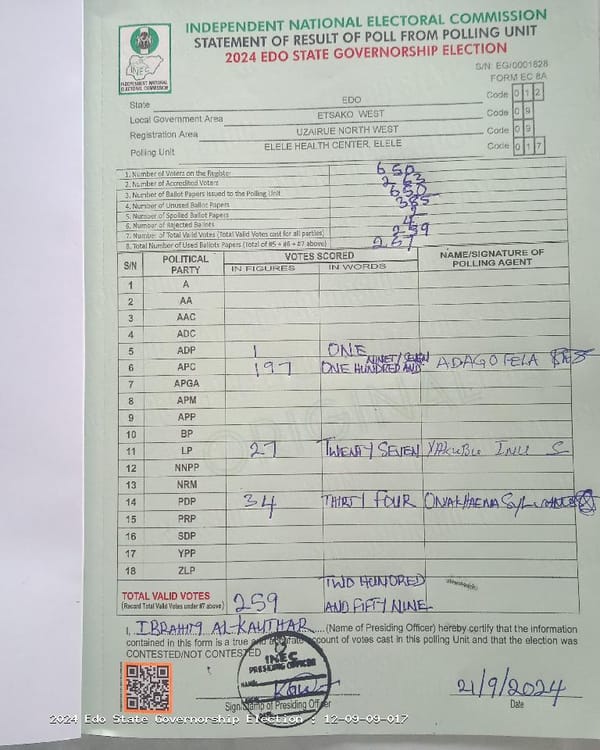 INDEPENDENT NATIONAL ELECTORAL COMMISSION
STATEMENT OF RESULT OF POLL FROM POLLING UNIT
2024 EDO STATE GOVERNORSHIP ELECTION
INEC
INDEPENDENT NATIONAL ELECTORAL COMMISSION
S/N: EG/0001628
FORM EC 8A
State EDO Code 0 1 2
Local Government Area ETSAKO WEST Code 0 9
Registration Area UZAIRUE NORTH WEST Code 0 9
Polling Unit ELELE HEALTH CENTER, ELELE Code 0 1 7
1. Number of Voters on the Register 650
2. Number of Accredited Voters 263
3. Number of Ballot Papers Issued to the Polling Unit 650
4. Number of Unused Ballot Papers 385
5. Number of Spoiled Ballot Papers
6. Number of Rejected Ballots 4
7. Number of Total Valid Votes (Total Valid Votes cast for all parties) 259
8. Total Number of Used Ballots Papers (Total of #5 + #6 + #7 above) 257
S/N POLITICAL PARTY VOTES SCORED NAME/SIGNATURE OF POLLING AGENT
IN FIGURES IN WORDS
1 A
2 AA
3 AAC
4 ADC
5 ADP 1 ONE
6 APC 197 ONE HUNDRED AND NINETY SEVEN ADAGO FELA
7 APGA
8 APM
9 APP
10 BP
11 LP 27 TWENTY SEVEN YAKUBU INU S
12 NNPP
13 NRM
14 PDP 34 THIRTY FOUR
15 PRP
16 SDP
17 YPP
18 ZLP
TOTAL VALID VOTES 259 TWO HUNDRED
(Record Total Valid Votes under #7 above) AND FIFTY NINE
I, IBRAHIM AL-KAUTHAR (Name of Presiding Officer) hereby certify that the information
contained in this form is a true and accurate account of votes cast in this polling Unit and that the election was
CONTESTED/NOT CONTESTED
INEC
PRESIDING OFFICER
21/9/2024
Sign/Stamp of Presiding Officer Date
2024 Edo State Governorship Election : 12-09-09-017